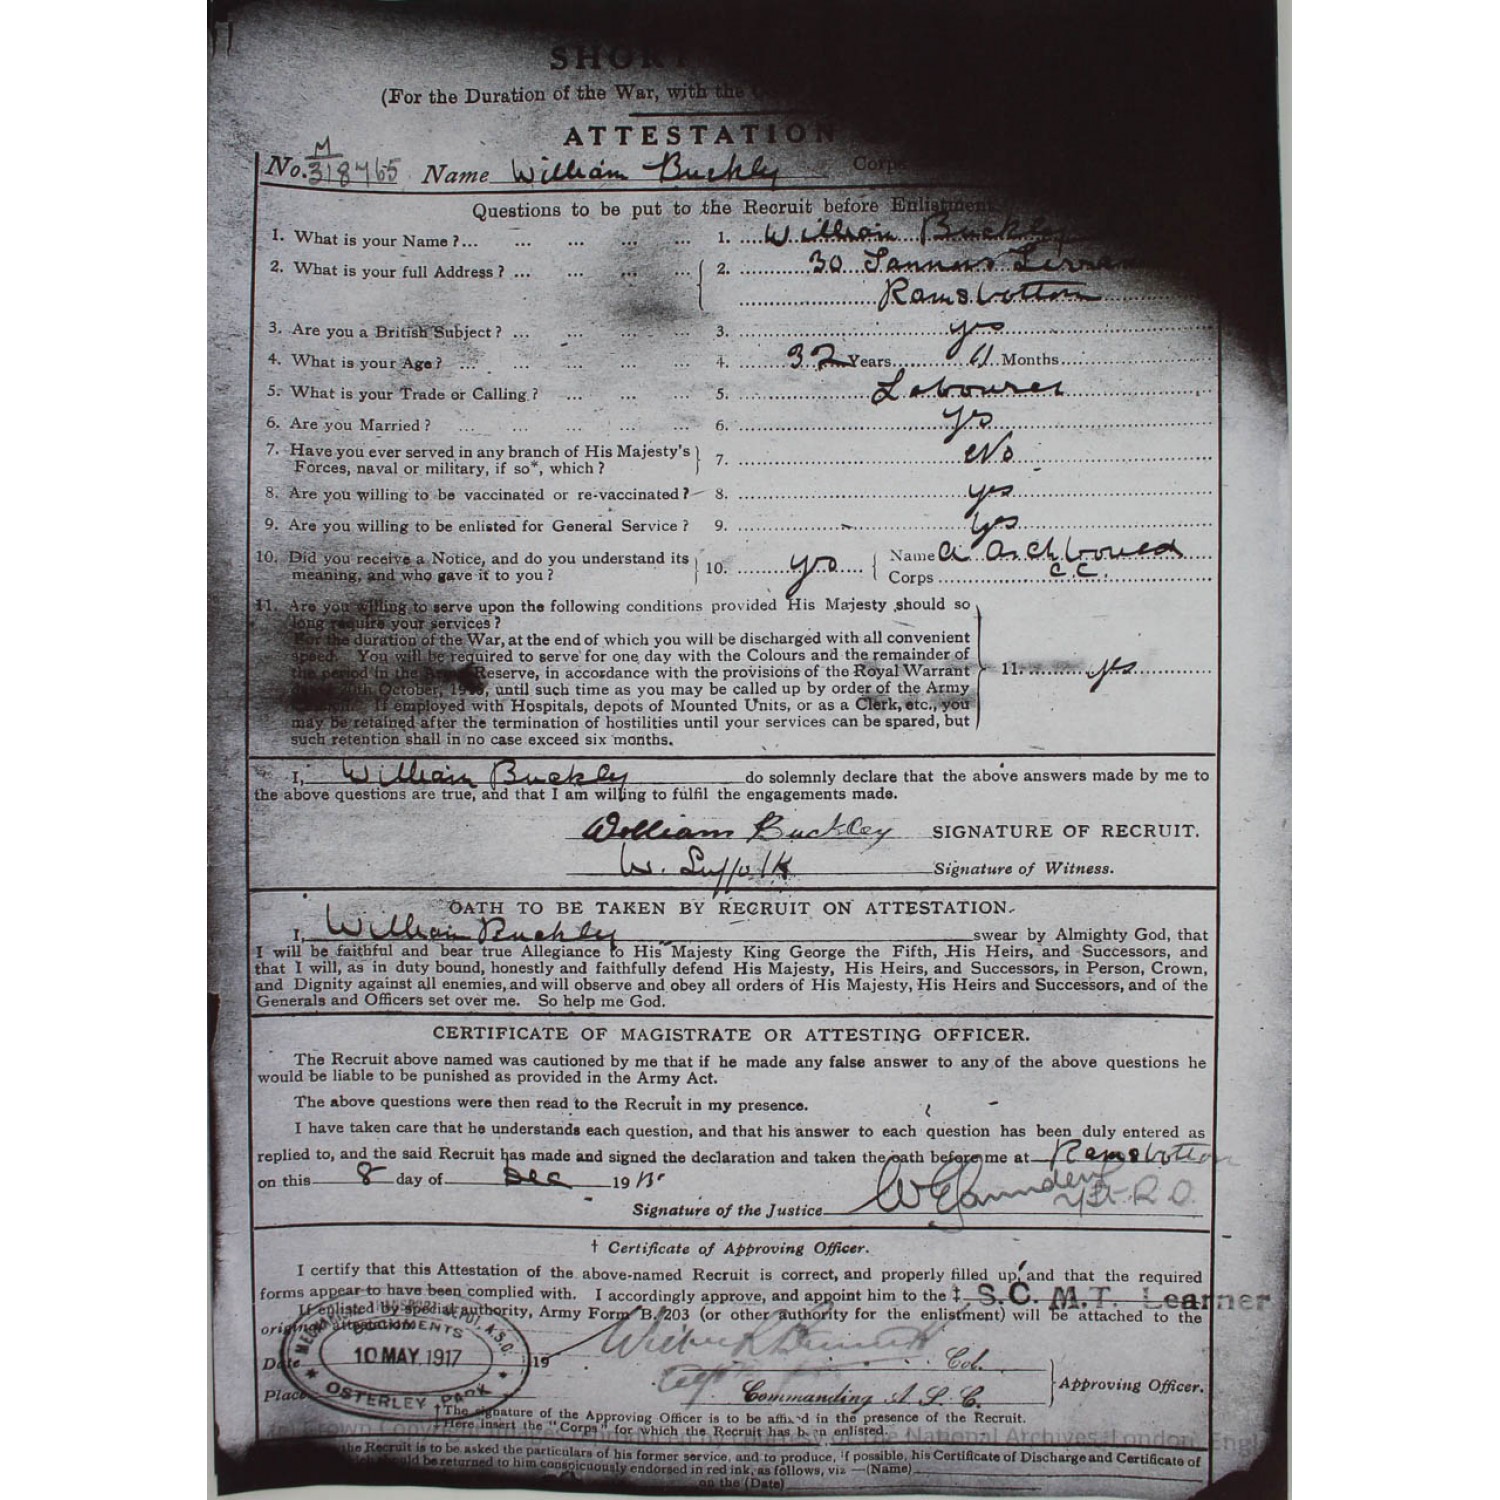 SHORT
(For the Duration of the War, with the
ATTESTATION
No. M/318765 Name William Buckley Corps
Questions to be put to the Recruit before Enlistment
1. What is your Name?... ... ... ... ... 1. William Buckley
2. What is your full Address? ... ... ... ... 2. 30 Terra
Ramsbottom
3. Are you a British Subject? ... ... ... ... 3. yes
4. What is your Age? ... ... ... ... ... 4. 32 Years 11 Months
5. What is your Trade or Calling? ... ... ... 5. Labourer
6. Are you Married? ... ... ... ... ... 6. yes
7. Have you ever served in any branch of His Majesty's
Forces, naval or military, if so*, which? 7. No
8. Are you willing to be vaccinated or re-vaccinated? 8. yes
9. Are you willing to be enlisted for General Service? 9. yes
10. Did you receive a Notice, and do you understand its
meaning, and who gave it to you? 10. yes Name A
Corps C.C.
11. Are you willing to serve upon the following conditions provided His Majesty should so
long require your services?
For the duration of the War, at the end of which you will be discharged with all convenient
speed. You will be required to serve for one day with the Colours and the remainder of
the period in the Army Reserve, in accordance with the provisions of the Royal Warrant
October, until such time as you may be called up by order of the Army 11. yes
If employed with Hospitals, depots of Mounted Units, or as a Clerk, etc., you
may be retained after the termination of hostilities until your services can be spared, but
such retention shall in no case exceed six months.
I, William Buckley do solemnly declare that the above answers made by me to
the above questions are true, and that I am willing to fulfil the engagements made.
William Buckley SIGNATURE OF RECRUIT.
W. Suffolk Signature of Witness.
OATH TO BE TAKEN BY RECRUIT ON ATTESTATION.
I, William Buckley swear by Almighty God, that
I will be faithful and bear true Allegiance to His Majesty King George the Fifth, His Heirs, and Successors, and
that I will, as in duty bound, honestly and faithfully defend His Majesty, His Heirs, and Successors, in Person, Crown,
and Dignity against all enemies, and will observe and obey all orders of His Majesty, His Heirs and Successors, and of the
Generals and Officers set over me. So help me God.
CERTIFICATE OF MAGISTRATE OR ATTESTING OFFICER.
The Recruit above named was cautioned by me that if he made any false answer to any of the above questions he
would be liable to be punished as provided in the Army Act.
The above questions were then read to the Recruit in my presence.
I have taken care that he understands each question, and that his answer to each question has been duly entered as
replied to, and the said Recruit has made and signed the declaration and taken the oath before me at Ramsbottom
on this 8 day of Dec 1915
Signature of the Justice R.O.
† Certificate of Approving Officer.
I certify that this Attestation of the above-named Recruit is correct, and properly filled up, and that the required
forms appear to have been complied with. I accordingly approve, and appoint him to the ‡ S.C. M.T. Learner
If enlisted by special authority, Army Form B. 203 (or other authority for the enlistment) will be attached to the
original attestation
DOCUMENTS A.S.C.
Date 10 MAY 1917 19 Col.
Place OSTERLEY PARK Commanding A. S. C. Approving Officer.
† The signature of the Approving Officer is to be affixed in the presence of the Recruit.
‡ Here insert the "Corps" for which the Recruit has been enlisted.
Crown Copyright Images reproduced by courtesy of The National Archives, London, Engl
the Recruit is to be asked the particulars of his former service, and to produce, if possible, his Certificate of Discharge and Certificate of
should be returned to him conspicuously endorsed in red ink, as follows, viz.—(Name)
on the (Date)